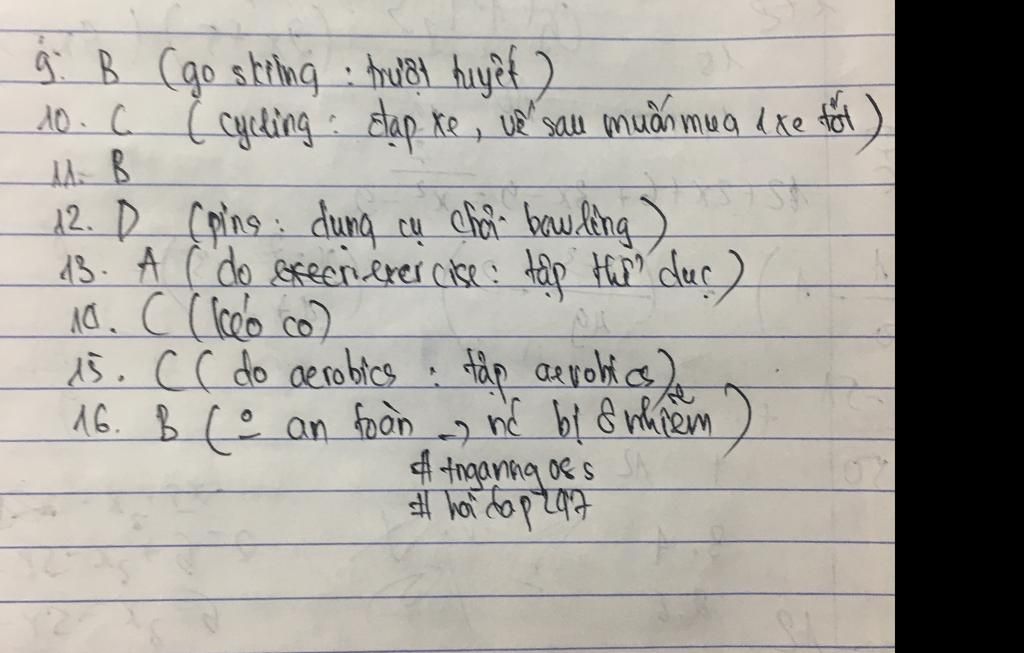 9. B (go skiing : trượt tuyết)
10. C (cycling : đạp xe, vế sau muốn mua 1 xe tốt)
11. B
12. D (pins : dụng cụ chơi bowling)
13. A ( do exercise : tập thể dục)
14. C (kéo co)
15. C ( do aerobics : tập aerobics)
16. B ( o an toàn -> nc bị ô nhiễm)
# hoidap247